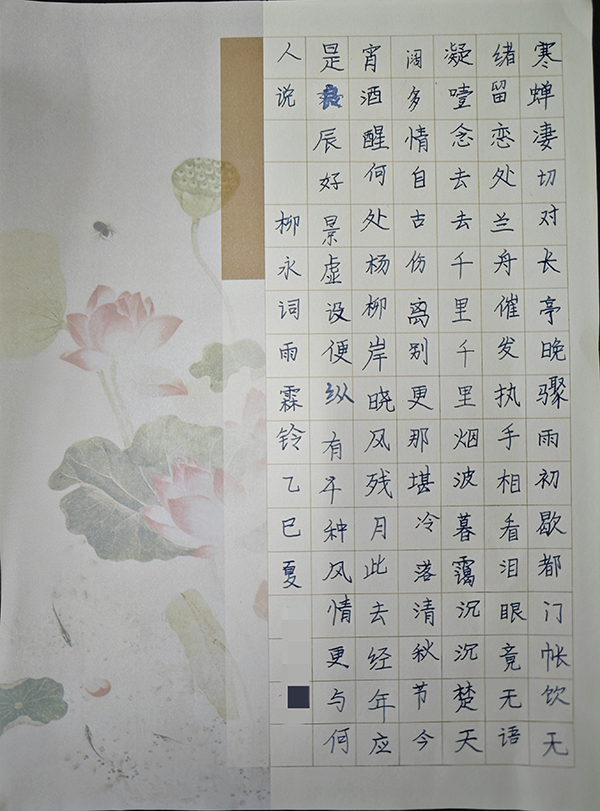 寒蝉凄切对长亭晚骤雨初歇都门帐饮无
绪留恋处兰舟催发执手相看泪眼竟无语
凝噎念去去千里千里烟波暮霭沉沉楚天
阔多情自古伤离别更那堪冷落清秋节今
宵酒醒何处杨柳岸晓风残月此去经年应
是良辰好景虚设便纵有千种风情更与何
人说 柳永词雨霖铃乙巳夏